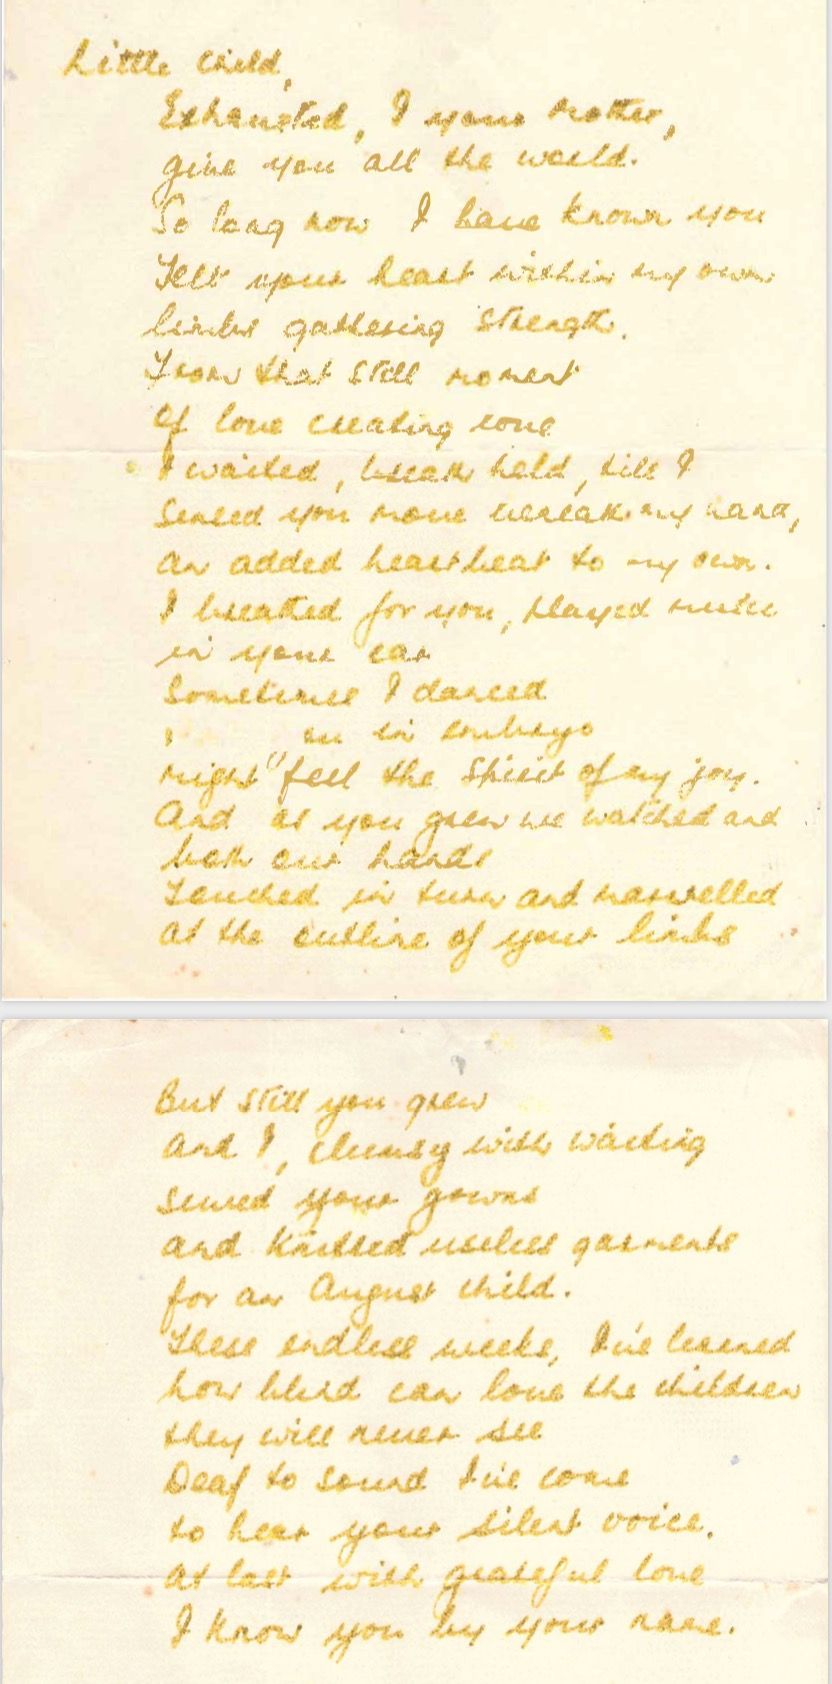 Little Child,
Exhausted, I your mother,
give you all the world.
So long now I have known you
Felt your heart within my own
limbs gathering strength.
From that still moment
Of love creating love
I waited, breath held, till I
Sensed you move beneath my hand,
An added heartbeat to my own.
I breathed for you, played music
in your ear
Sometimes I danced
in embryo
might feel the spirit of my joy.
And as you grew we watched and
both our hands
Touched in turn and marvelled
At the outline of your limbs
But still you grew
And I, clumsy with waiting
sewed your gowns
and knitted useless garments
for an August child.
These endless weeks, I've learned
how blind can love the children
they will never see
Deaf to sound I've come
to hear your silent voice.
At last with grateful love
I know you by your name.